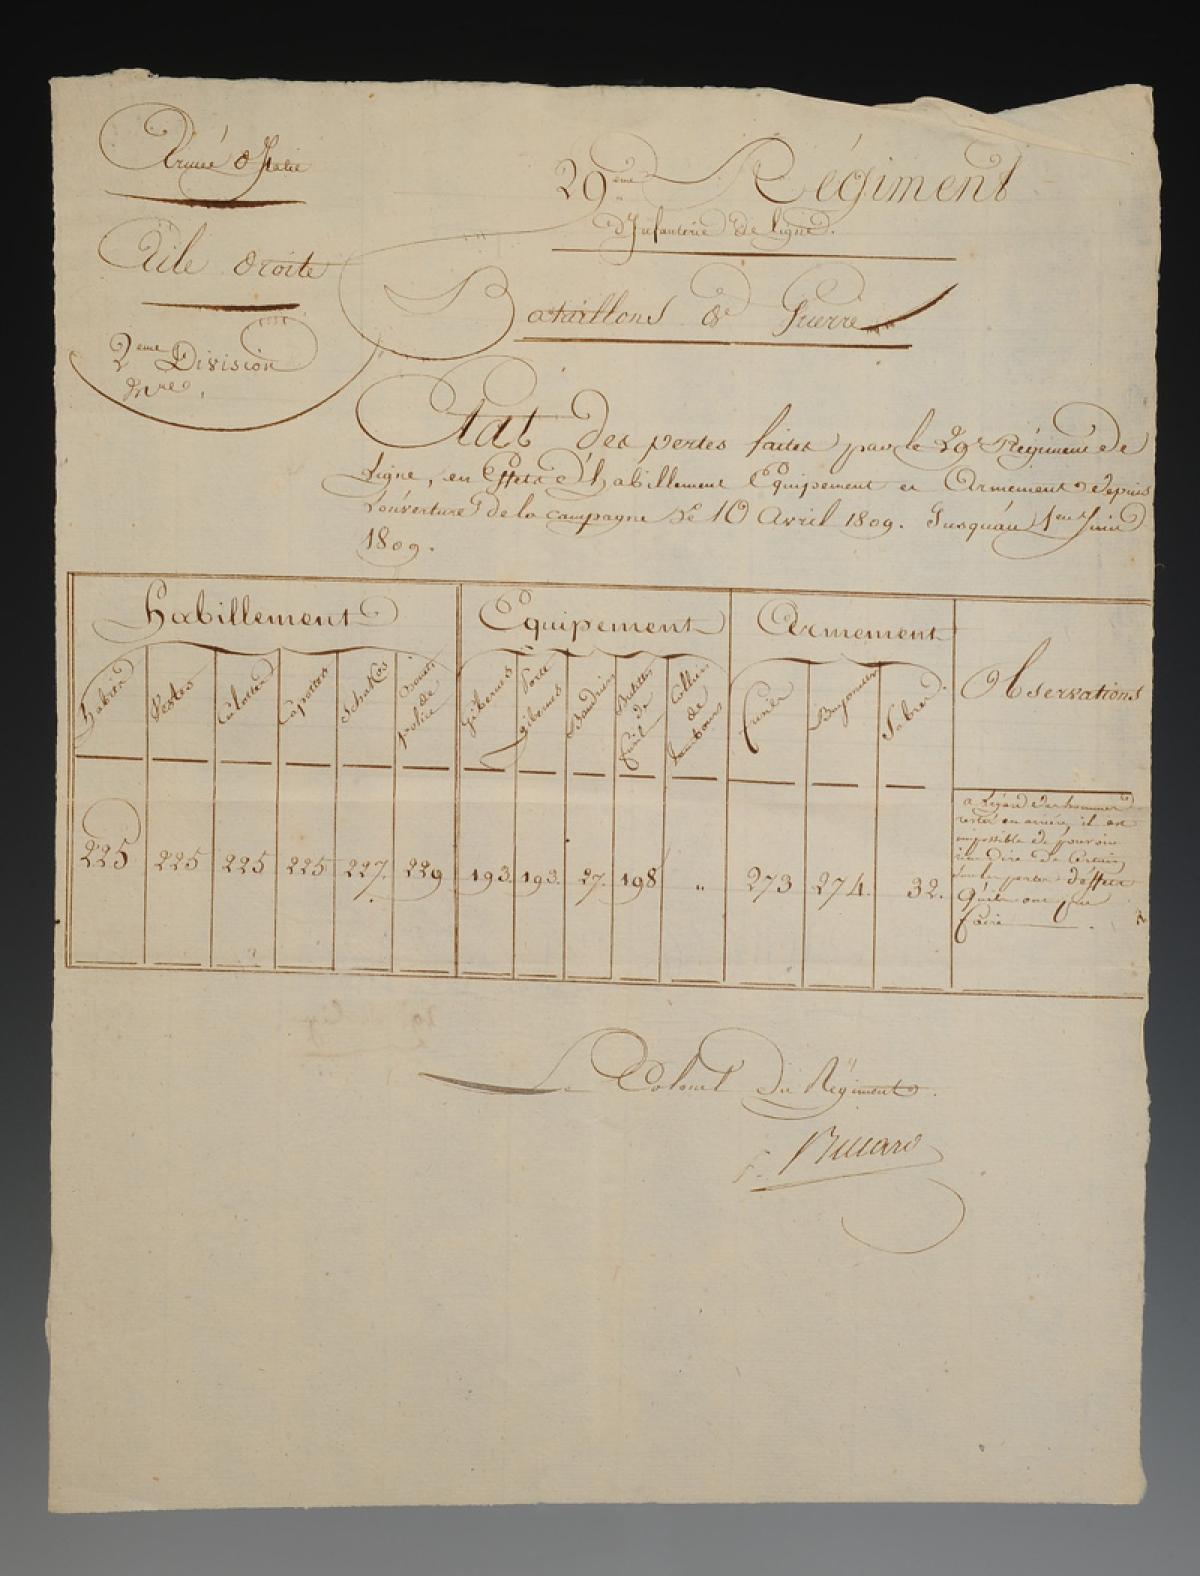 Armée d'Italie
Aile droite
2eme Division
29.eme Régiment
d'Infanterie de ligne.
Bataillons de Guerre
Etat des pertes faites par le 29e Régiment de
Ligne, en Effets d'habillement Equipement et Armement depuis
L'ouverture de la campagne le 10 Avril 1809. Jusqu'au 1er Juin
1809.
Habillement Equipement Armement Observations
Habits Vestes Culottes Capottes Schakos Bonnets de police Gibernes Porte gibernes Baudriers Bretelles de fusil Colliers de tambours Fusils Bayonnettes Sabres
225 225 225 225 227. 229 193. 193. 27. 198 " 273 274. 32.
a L'égard des hommes
restés en arrière, il est
impossible de pouvoir
rien dire de Certain
Sur les pertes d'effets
Qu'ils ont pu
faire.
Le Colonel du Régiment.
Billard